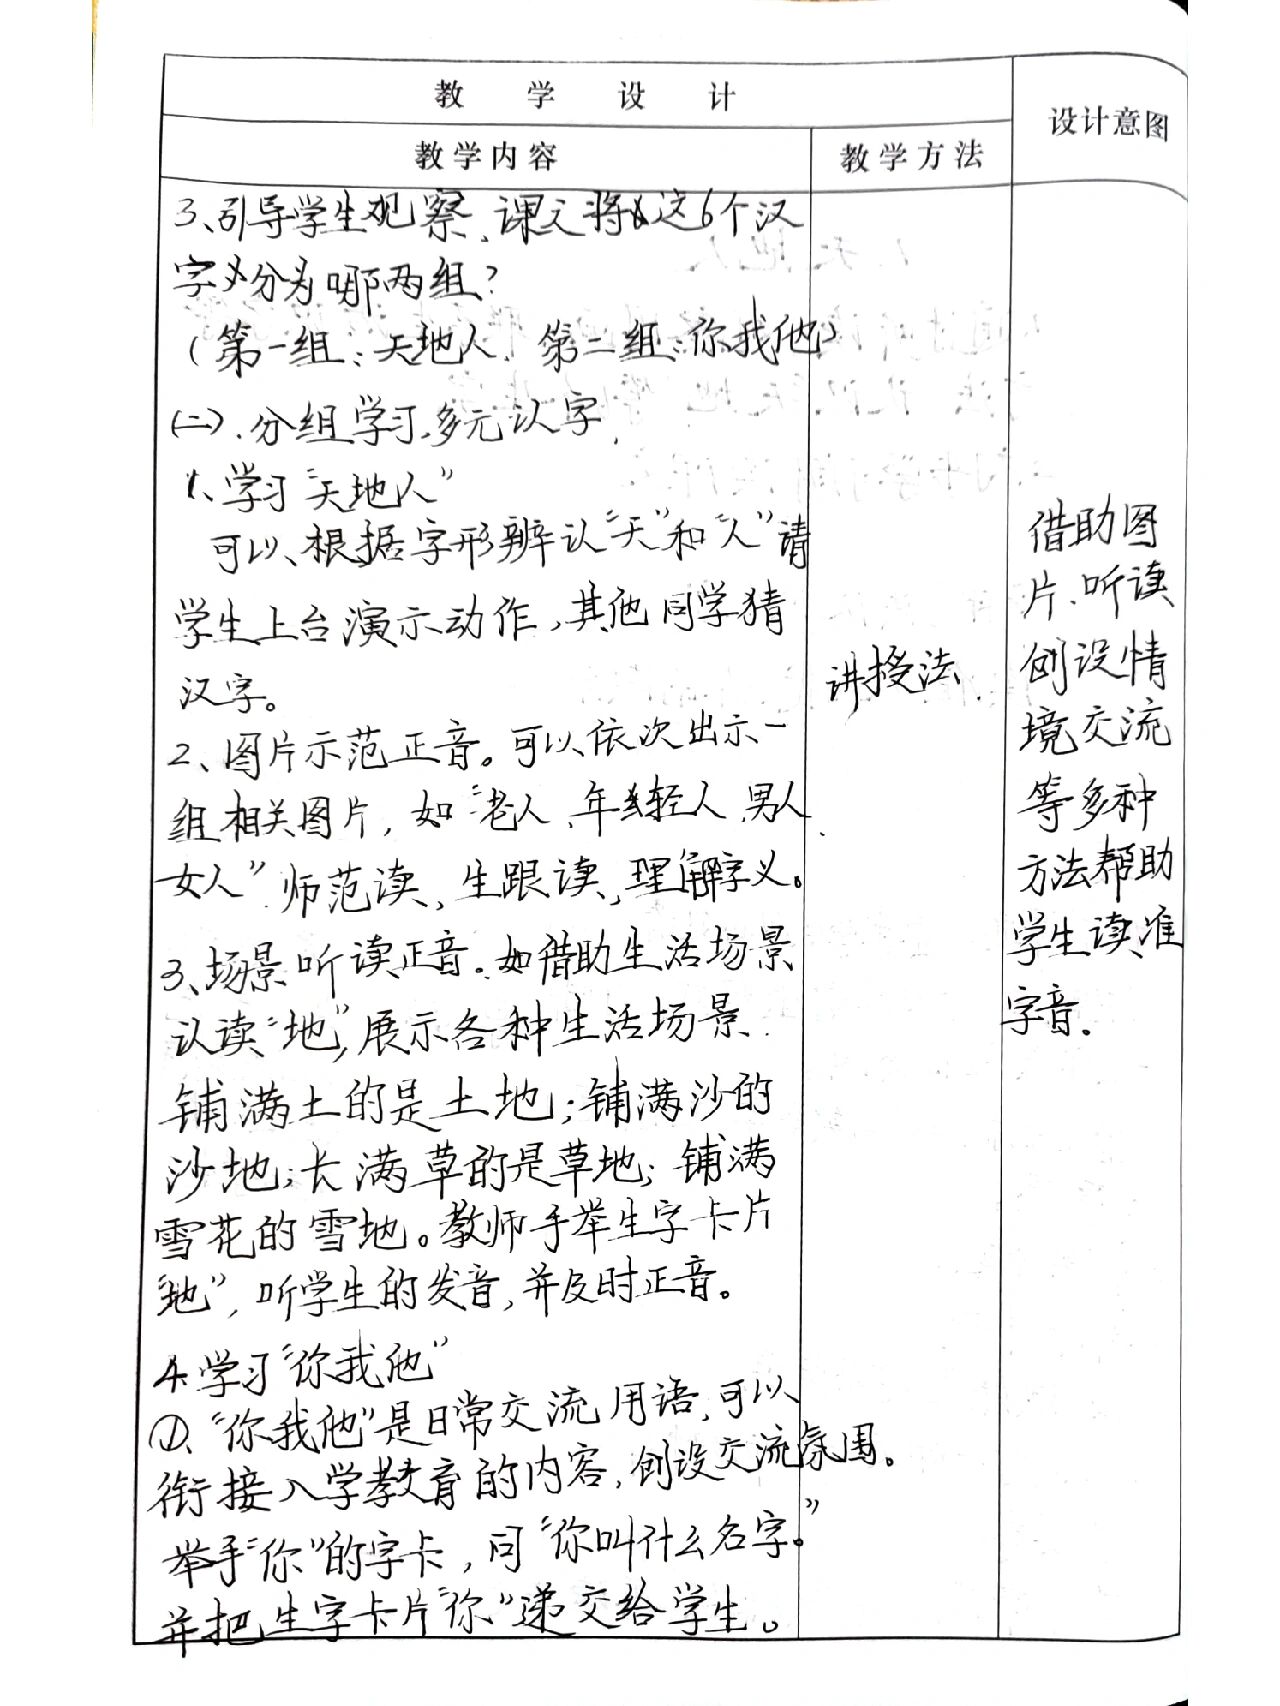 教 学 设 计
设计意图
教学内容
教学方法
3、引导学生观察、课文将这6个汉
字分为哪两组？
（第一组：天地人、第二组：你我他）
(二)、分组学习、多元认字、
1、学习“天地人”
可以、根据字形辨认“天”和“人”请
学生上台演示动作，其他同学猜
汉字。
2、图片示范正音。可以依次出示一
组相关图片，如“老人、年轻人、男人、
女人”师范读，生跟读，理解字义。
3、场景听读正音。如借助生活场景
认读“地”，展示各种生活场景.
铺满土的是土地；铺满沙的
沙地；长满草的是草地；铺满
雪花的雪地。教师手举生字卡片
“地”，听学生的发音，并及时正音。
4.学习“你我他”
①、“你我他”是日常交流用语，可以
衔接入学教育的内容，创设交流氛围。
举手“你”的字卡，问“你叫什么名字。”
并把生字卡片“你”递交给学生。
讲授法
借助图
片、听读
创设情
境交流
等多种
方法帮助
学生读准
字音.